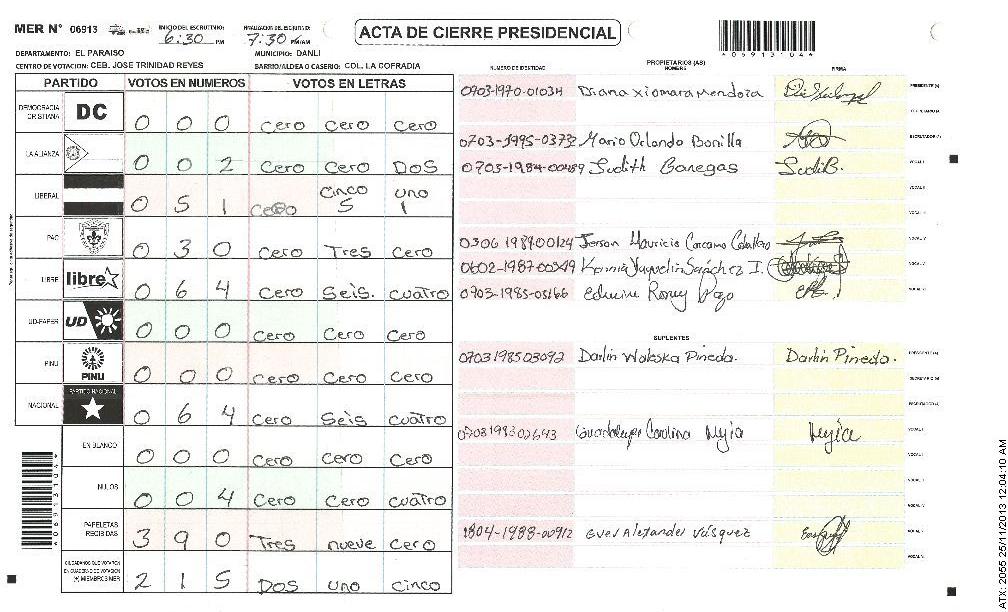 MER N° 06913 INICIO DEL ESCRUTINIO: 6:30 PM FINALIZACION DEL ESCRUTINIO: 7:30 PM/AM
ACTA DE CIERRE PRESIDENCIAL
0 6 9 1 3 1 0 4
DEPARTAMENTO: EL PARAISO MUNICIPIO: DANLI
CENTRO DE VOTACION: CEB. JOSE TRINIDAD REYES BARRIO/ALDEA O CASERIO: COL. LA COFRADIA
PARTIDO VOTOS EN NUMEROS VOTOS EN LETRAS
DEMOCRACIA CRISTIANA DC 0 0 0 cero cero cero
LA ALIANZA 0 0 2 cero cero DOS
LIBERAL 0 5 1 cero cinco 5 uno 1
PAC 0 3 0 cero Tres cero
LIBRE libre 0 6 4 cero seis. cuatro
UD-FAPER UD 0 0 0 cero cero cero
PINU PINU 0 0 0 cero cero cero
NACIONAL PARTIDO NACIONAL 0 6 4 cero seis cuatro
EN BLANCO 0 0 0 cero cero cero
NULOS 0 0 4 cero cero cuatro
PAPELETAS RECIBIDAS 3 9 0 Tres nueve cero
CIUDADANOS QUE VOTARON EN CUADERNO DE VOTACION (+) MIEMBROS MER 2 1 5 DOS uno cinco
PROPIETARIOS (AS)
NUMERO DE IDENTIDAD NOMBRE FIRMA
0703-1970-01034 Diana Xiomara Mendoza PRESIDENTE (A)
SECRETARIO (A)
0703-1995-03732 Mario Orlando Bonilla ESCRUTADOR (A)
0703-1984-00489 Judith Banegas JudiB. VOCAL I
VOCAL II
VOCAL III
0306 198900124 Jerson Mauricio Carcamo Ceballos VOCAL IV
0602-1987-00349 Karmia Yaquelin Sánchez I. VOCAL V
0703-1985-05166 Edwine Romy VOCAL VI
SUPLENTES
0703198503092 Darlin Waleska Pineda. Darlin Pineda. PRESIDENTE (A)
SECRETARIO (A)
ESCRUTADOR (A)
0703198302643 Guadalupe Carolina Mejia Mejia VOCAL I
VOCAL II
VOCAL III
VOCAL IV
1804-1988-00912 Ever Alexander Vásquez VOCAL V
VOCAL VI
ATX: 2055 25/11/2013 12:04:10 AM